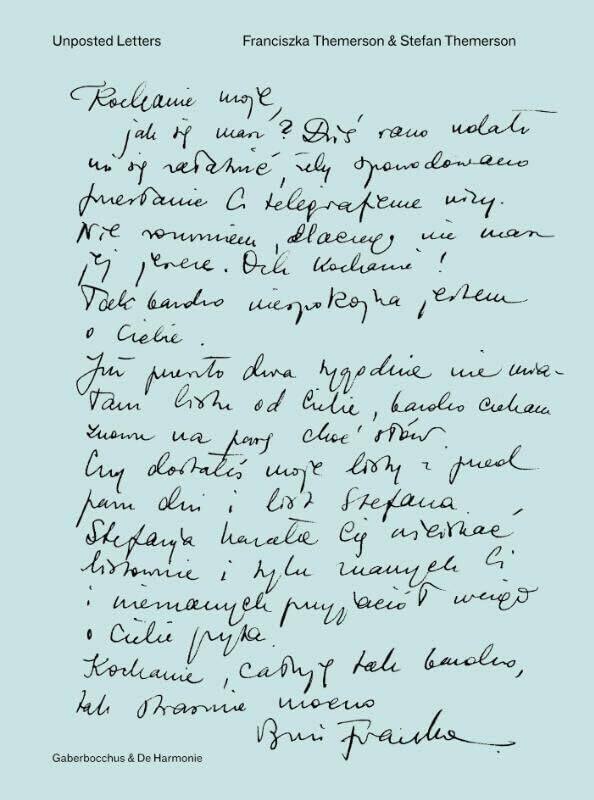 Unposted Letters
Franciszka Themerson & Stefan Themerson
Kochanie moje,
jak się masz? Dziś rano udało
mi się załatwić, żeby spowodowano
przesłanie Ci telegraficzne wizy.
Nie rozumiem, dlaczego nie masz
jej jeszcze. Och Kochanie!
Tak bardzo niespokojna jestem
o Ciebie.
Już przeszło dwa tygodnie nie mia-
łam listu od Ciebie, bardzo czekam
znowu na parę choć słów.
Czy dostałeś moje listy z przed
paru dni i list Stefana.
Stefan kazała Cię uściskać
listownie i tylu znanych Ci
i nieznanych przyjaciół wciąż
o Ciebie pyta.
Kochanie, całuję tak bardzo,
tak strasznie mocno
Franka
Gaberbocchus & De Harmonie